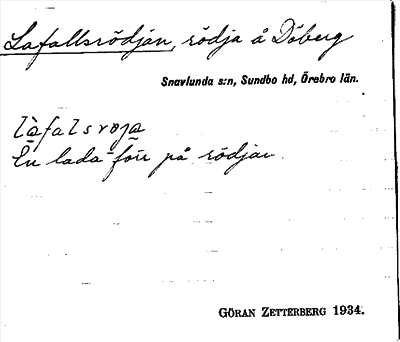 Lafallsrödjan, rödja å Döberg
Snavlunda s:n, Sundbo hd, Örebro län.
En lada förr på rödjan.
GÖRAN ZETTERBERG 1934.